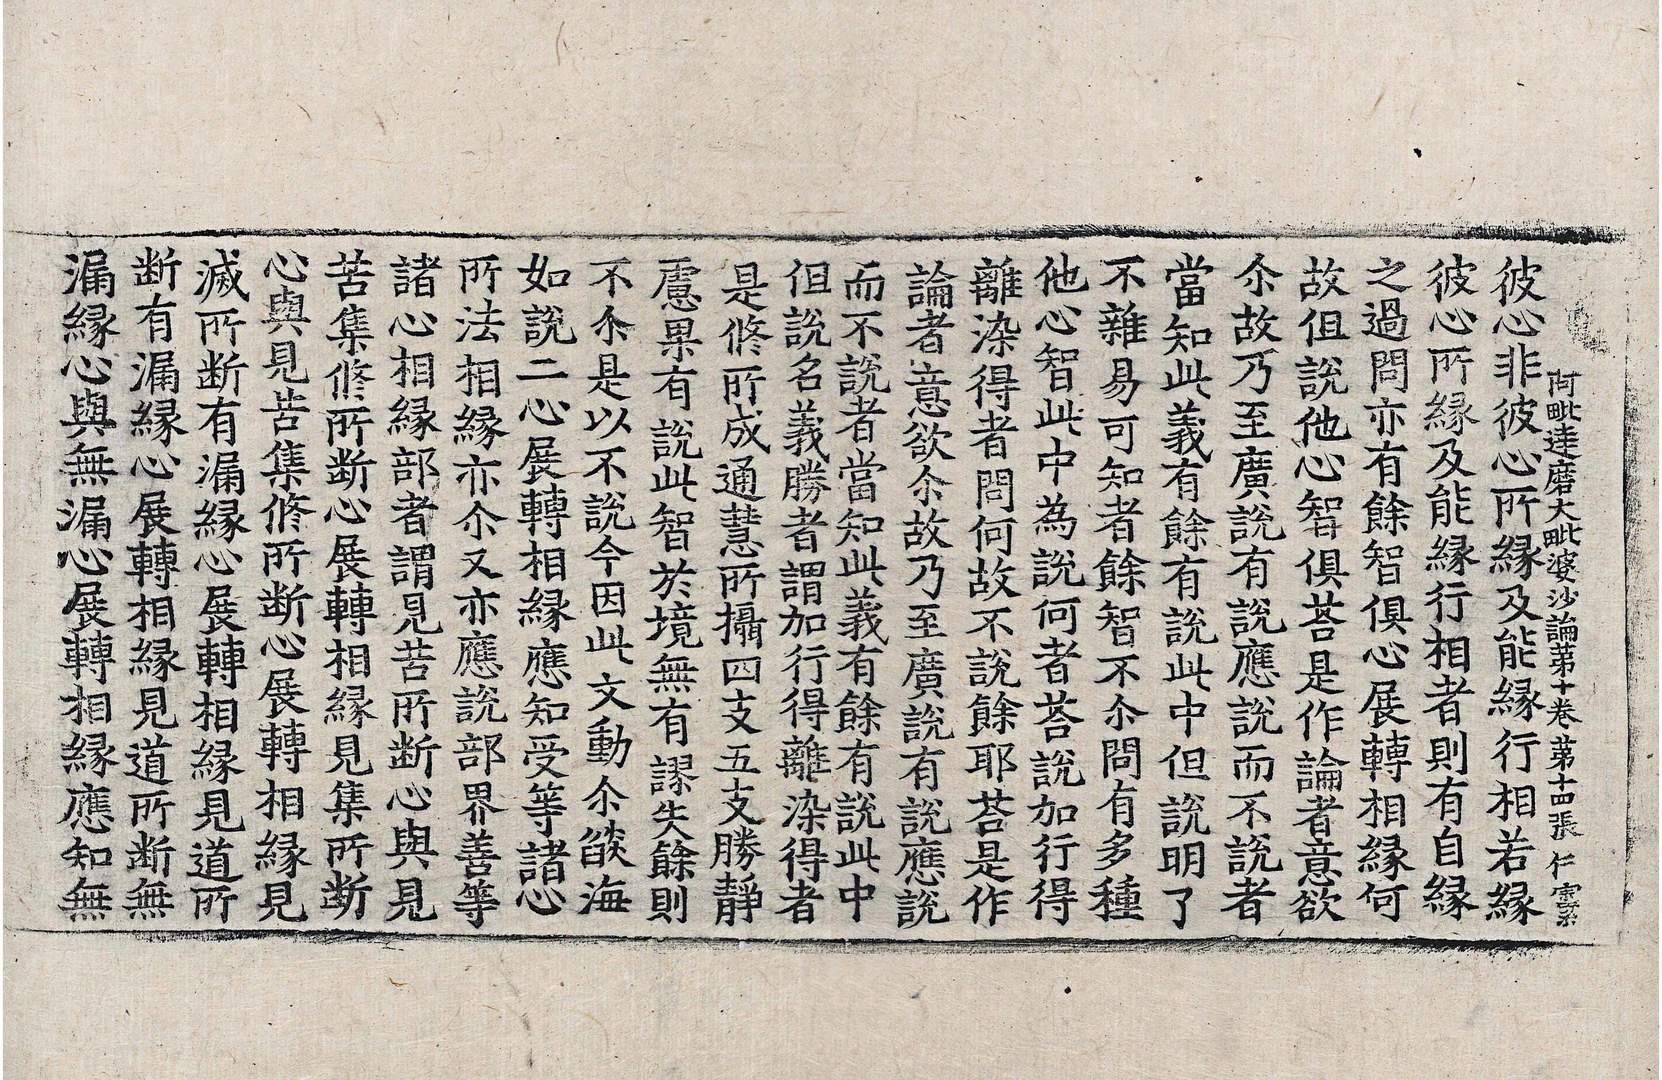 阿毗達磨大毗婆沙論第十卷 第十四張 仁
彼心非彼心所緣及能緣行相若緣
彼心所緣及能緣行相者則有自緣
之過問亦有餘智俱心展轉相緣何
故伹說他心智俱荅是作論者意欲
尒故乃至廣說有說應說而不說者
當知此義有餘有說此中但說明了
不雜易可知者餘智不尒問有多種
他心智此中為說何者荅說加行得
離染得者問何故不說餘耶荅是作
論者意欲尒故乃至廣說有說應說
而不說者當知此義有餘有說此中
但說名義勝者謂加行得離染得者
是俢所成通慧所攝四支五支勝靜
慮果有說此智於境無有謬失餘則
不尒是以不說今因此文動尒燄海
如說二心展轉相緣應知受等諸心
所法相緣亦尒又亦應說部界善等
諸心相緣部者謂見苦所斷心與見
苦集俢所斷心展轉相緣見集所斷
心與見苦集俢所斷心展轉相緣見
滅所斷有漏緣心展轉相緣見道所
斷有漏緣心展轉相緣見道所斷無
漏緣心與無漏心展轉相緣應知無